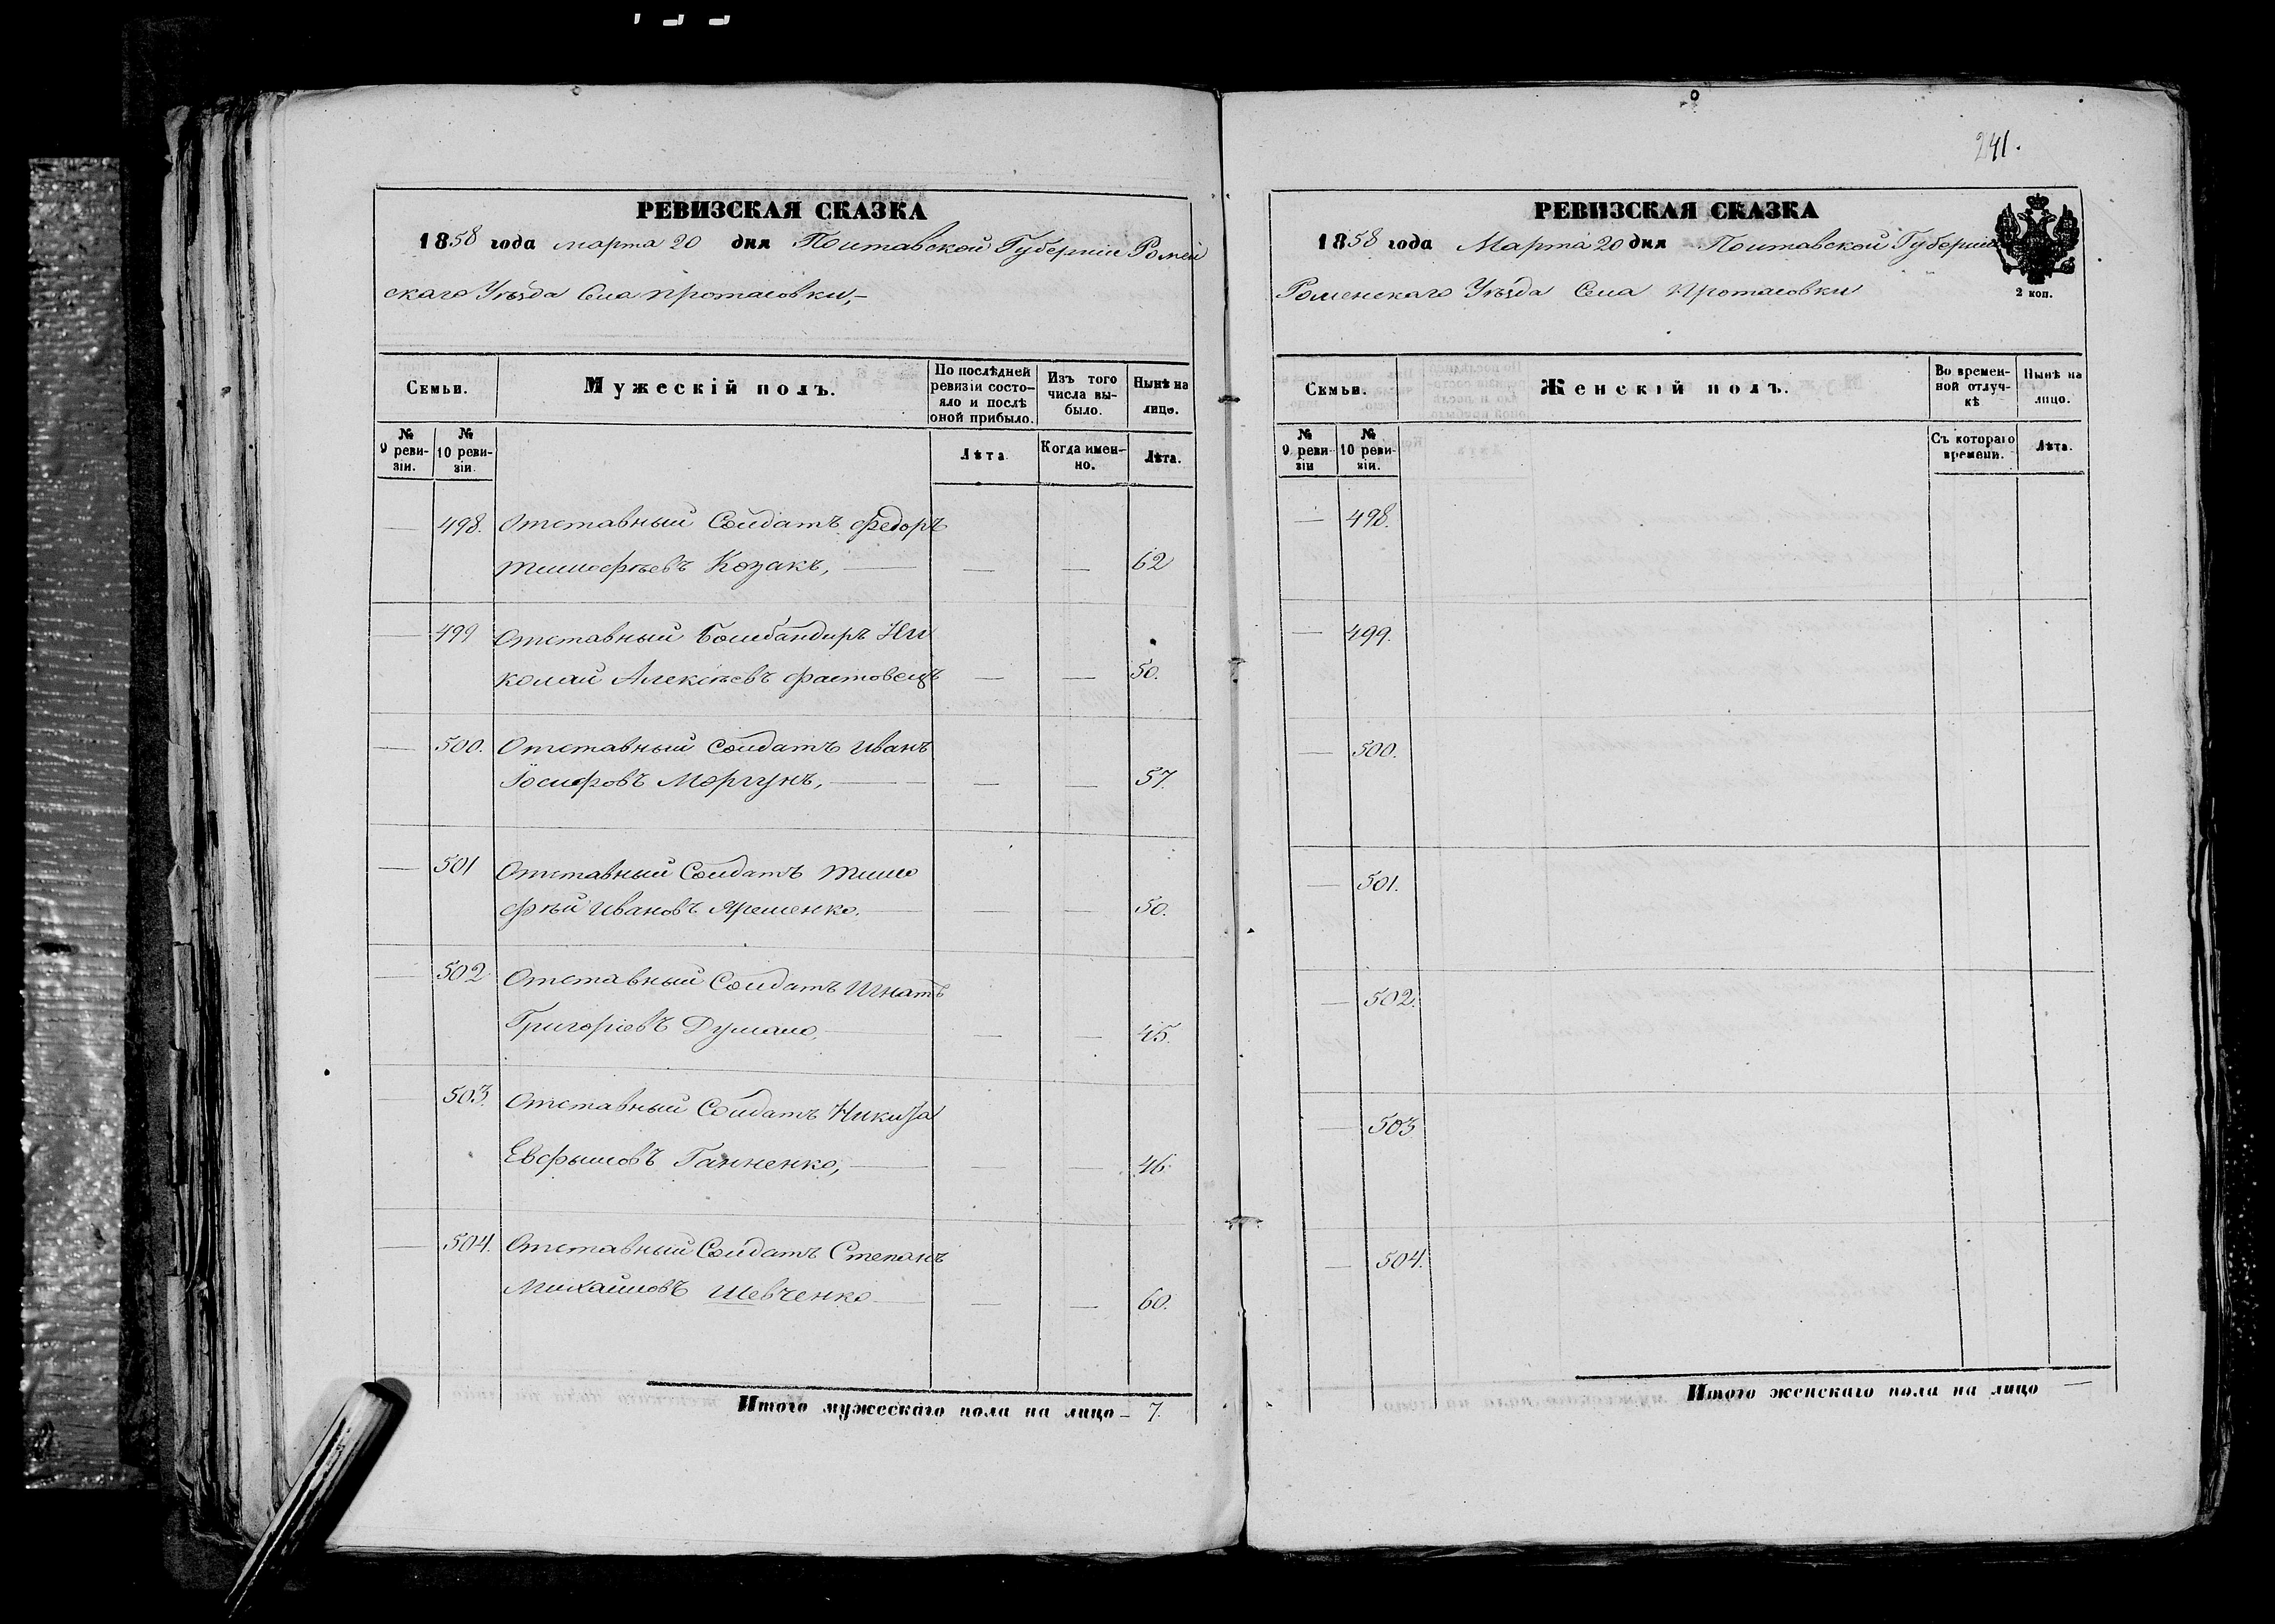 РЕВИЗСКАЯ СКАЗКА
1858 года марта 20 дня Полтавской Губерніи Ромен
скаго Уѣзда Села Протасовки,–
Семьи.
Мужескій полъ.
По послѣдней ревизіи состояло и послѣ оной прибыло.
Изъ того числа выбыло.
Нынѣ на лицо.
№ 9 ревизіи.
№ 10 ревизіи
Лѣта
Когда именно.
Лѣта.
— 498. Отставный Солдатъ Федоръ
Тимофѣевъ Козакъ, — — — 62
— 499 Отставный Бомбандиръ Ни
колай Алексѣевъ Фастовецъ — — 50.
— 500. Отставный Солдатъ Иванъ
Іосифовъ Моргунъ, — — — 57.
— 501 Отставный Солдатъ Тимо
фѣй Ивановъ Яременко. — — — 50.
— 502 Отставный Солдатъ Игнатъ
Григоріевъ — — — 45.
— 503. Отставный Солдатъ Никита
Евфимовъ Ганненко, — — — 46.
— 504. Отставный Солдатъ Степанъ
Михайловъ Шевченко — — — 60.
Итого мужескаго пола на лицо – 7.
241.
РЕВИЗСКАЯ СКАЗКА
1858 года Марта 20 дня Полтавской Губерніи
Роменскаго Уѣзда Села Протасовки
2 коп.
Семьи.
Женскій полъ.
Во временной отлучкѣ
Нынѣ на лицо.
№ 9 ревизіи
№ 10 ревизіи.
Съ котораго времени.
Лѣта.
— 498.
— 499.
— 500.
— 501.
— 502.
— 503
— 504.
Итого женскаго пола на лицо —